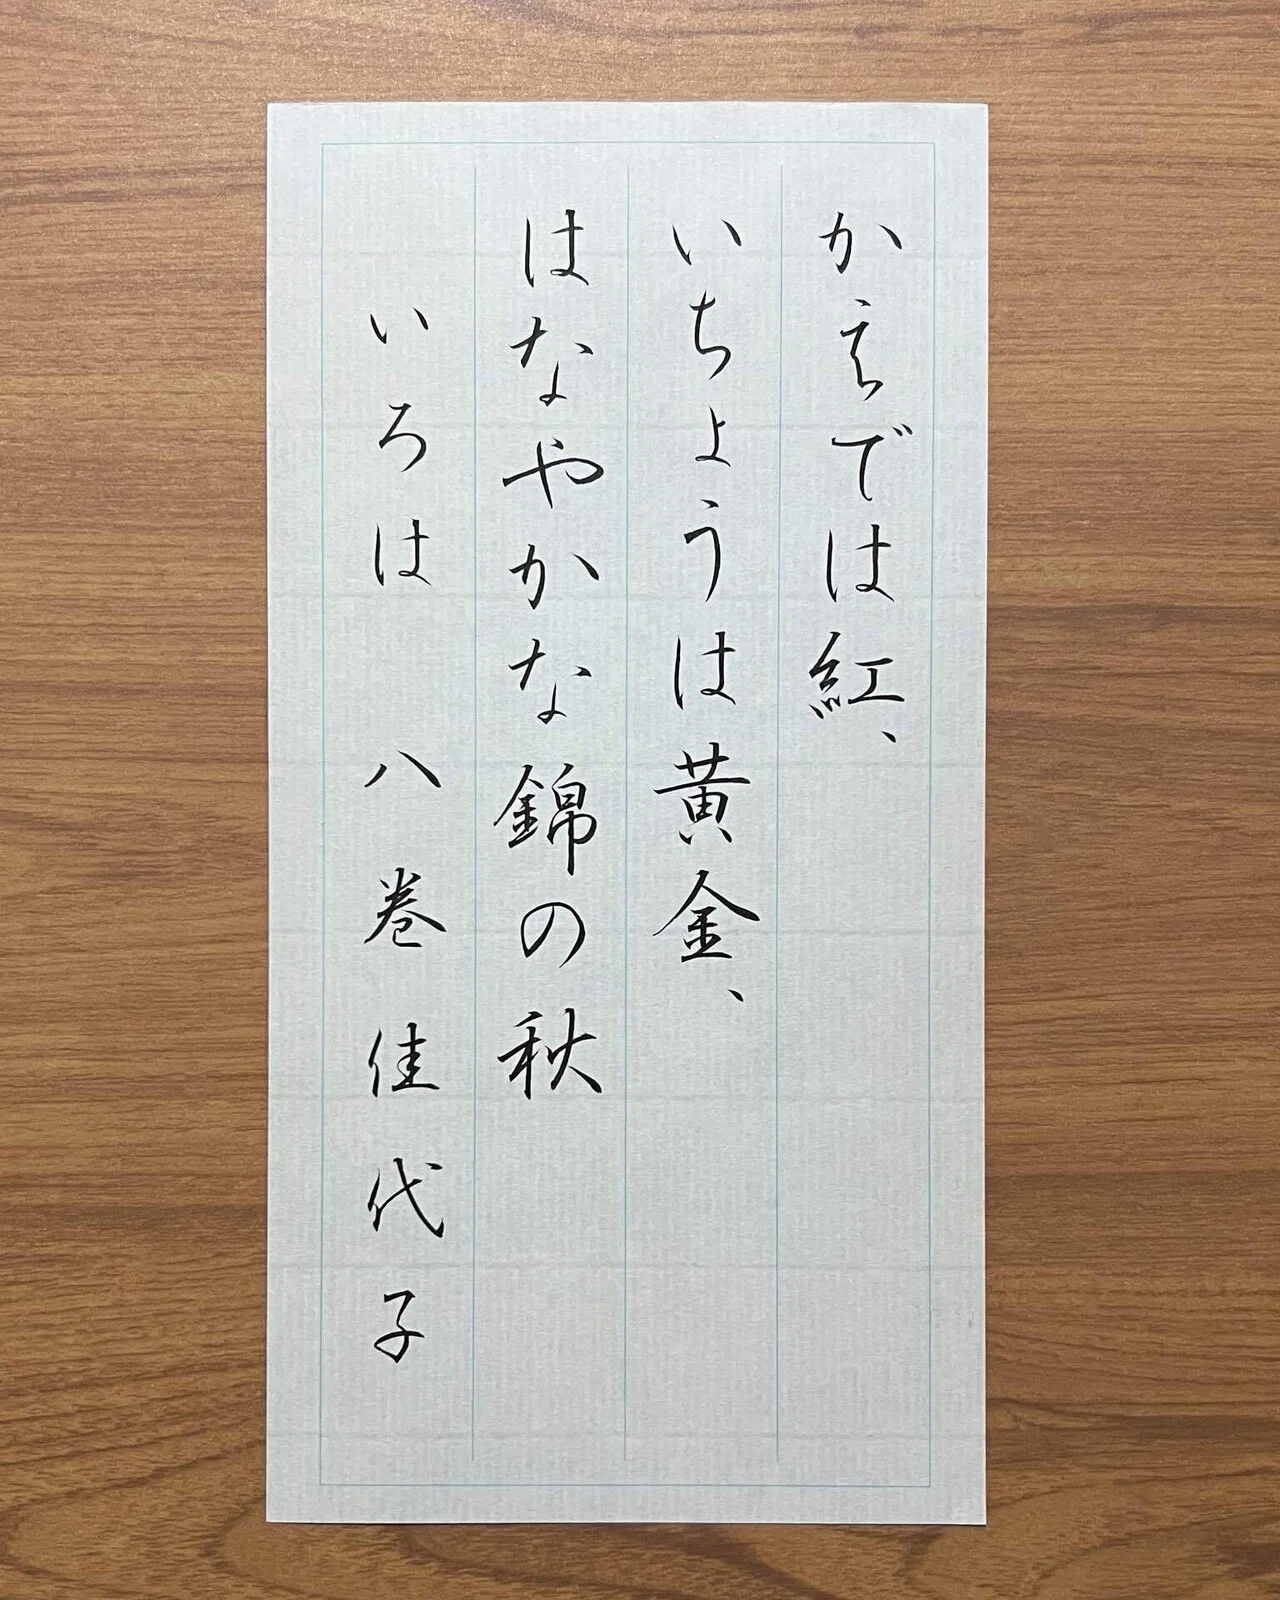 かえでは紅、
いちょうは黄金、
はなやかな錦の秋
いろは 八巻佳代子